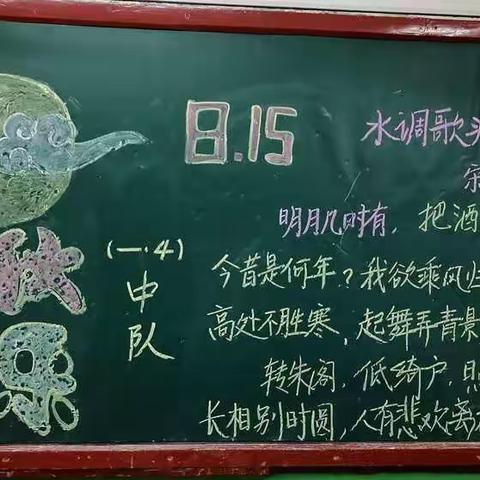 8.15
水调歌头
宋
明月几时有，把酒
今昔是何年？我欲乘风归
高处不胜寒，起舞弄青景
转朱阁，低绮户，照
长相别时圆，人有悲欢离
秋
乐
(一.4)
中
队